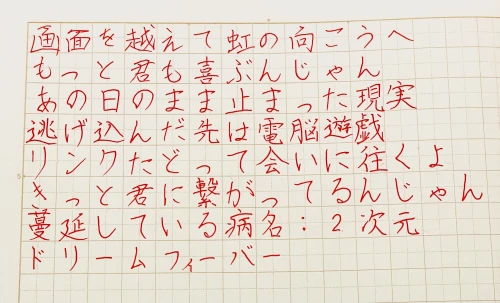 画面を越えて虹の向こうへ
もっと君も喜ぶんじゃん
あの日のまま止まった現実
逃げ込んだ先は電脳遊戯
リンクたどって会いに往くよ
きっと君に繋がってるんじゃん
蔓延している病名：2次元
ドリームフィーバー